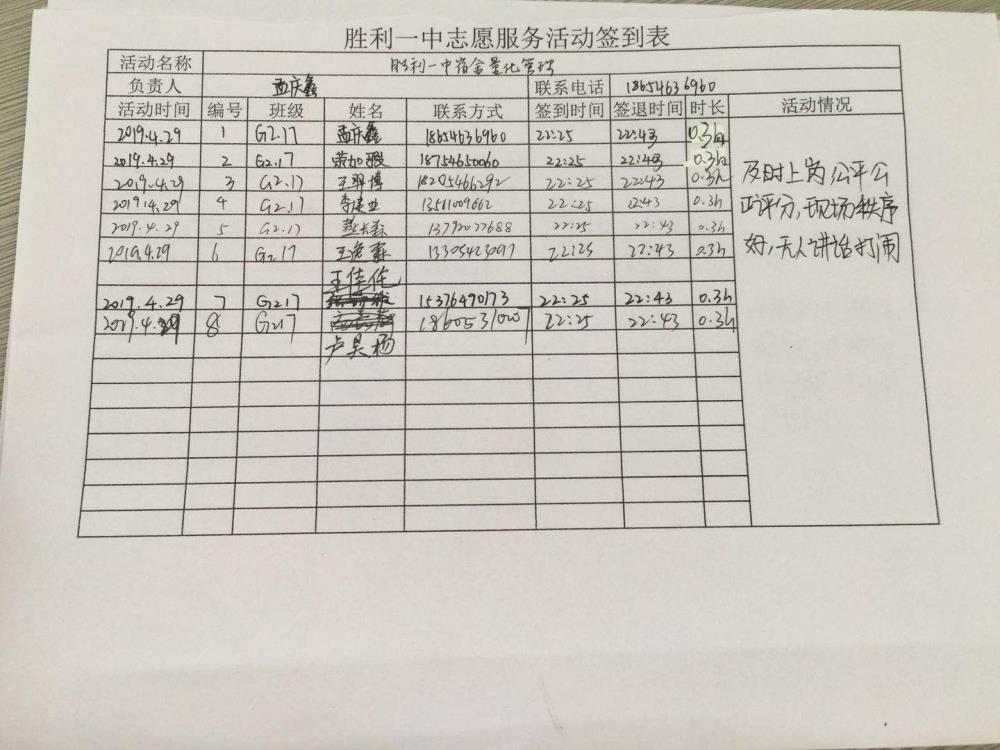 胜利一中志愿服务活动签到表
活动名称 胜利一中宿舍量化管理
负责人 孟庆鑫 联系电话 18654636960
活动时间 编号 班级 姓名 联系方式 签到时间 签退时间 时长 活动情况
2019.4.29 1 G2.17 孟庆鑫 18654636960 22:25 22:43 0.3h
2019.4.29 2 G2.17 18754650060 22:25 22:43 0.3h
2019.4.29 3 G2.17 王翠博 18205466292 22:25 22:43 0.3h
2019.4.29 4 G2.17 李建业 13561009662 22:25 22:43 0.3h
2019.4.29 5 G2.17 22:25 22:43 0.3h
2019.4.29 6 G2.17 22:25 22:43 0.3h
王佳佳
2019.4.29 7 G217 15376490173 22:25 22:43 0.3h
2019.4.29 8 G217 22:25 22:43 0.3h
卢昊杨
及时上岗,公平公
正评分,现场秩序
好,无人讲话打闹